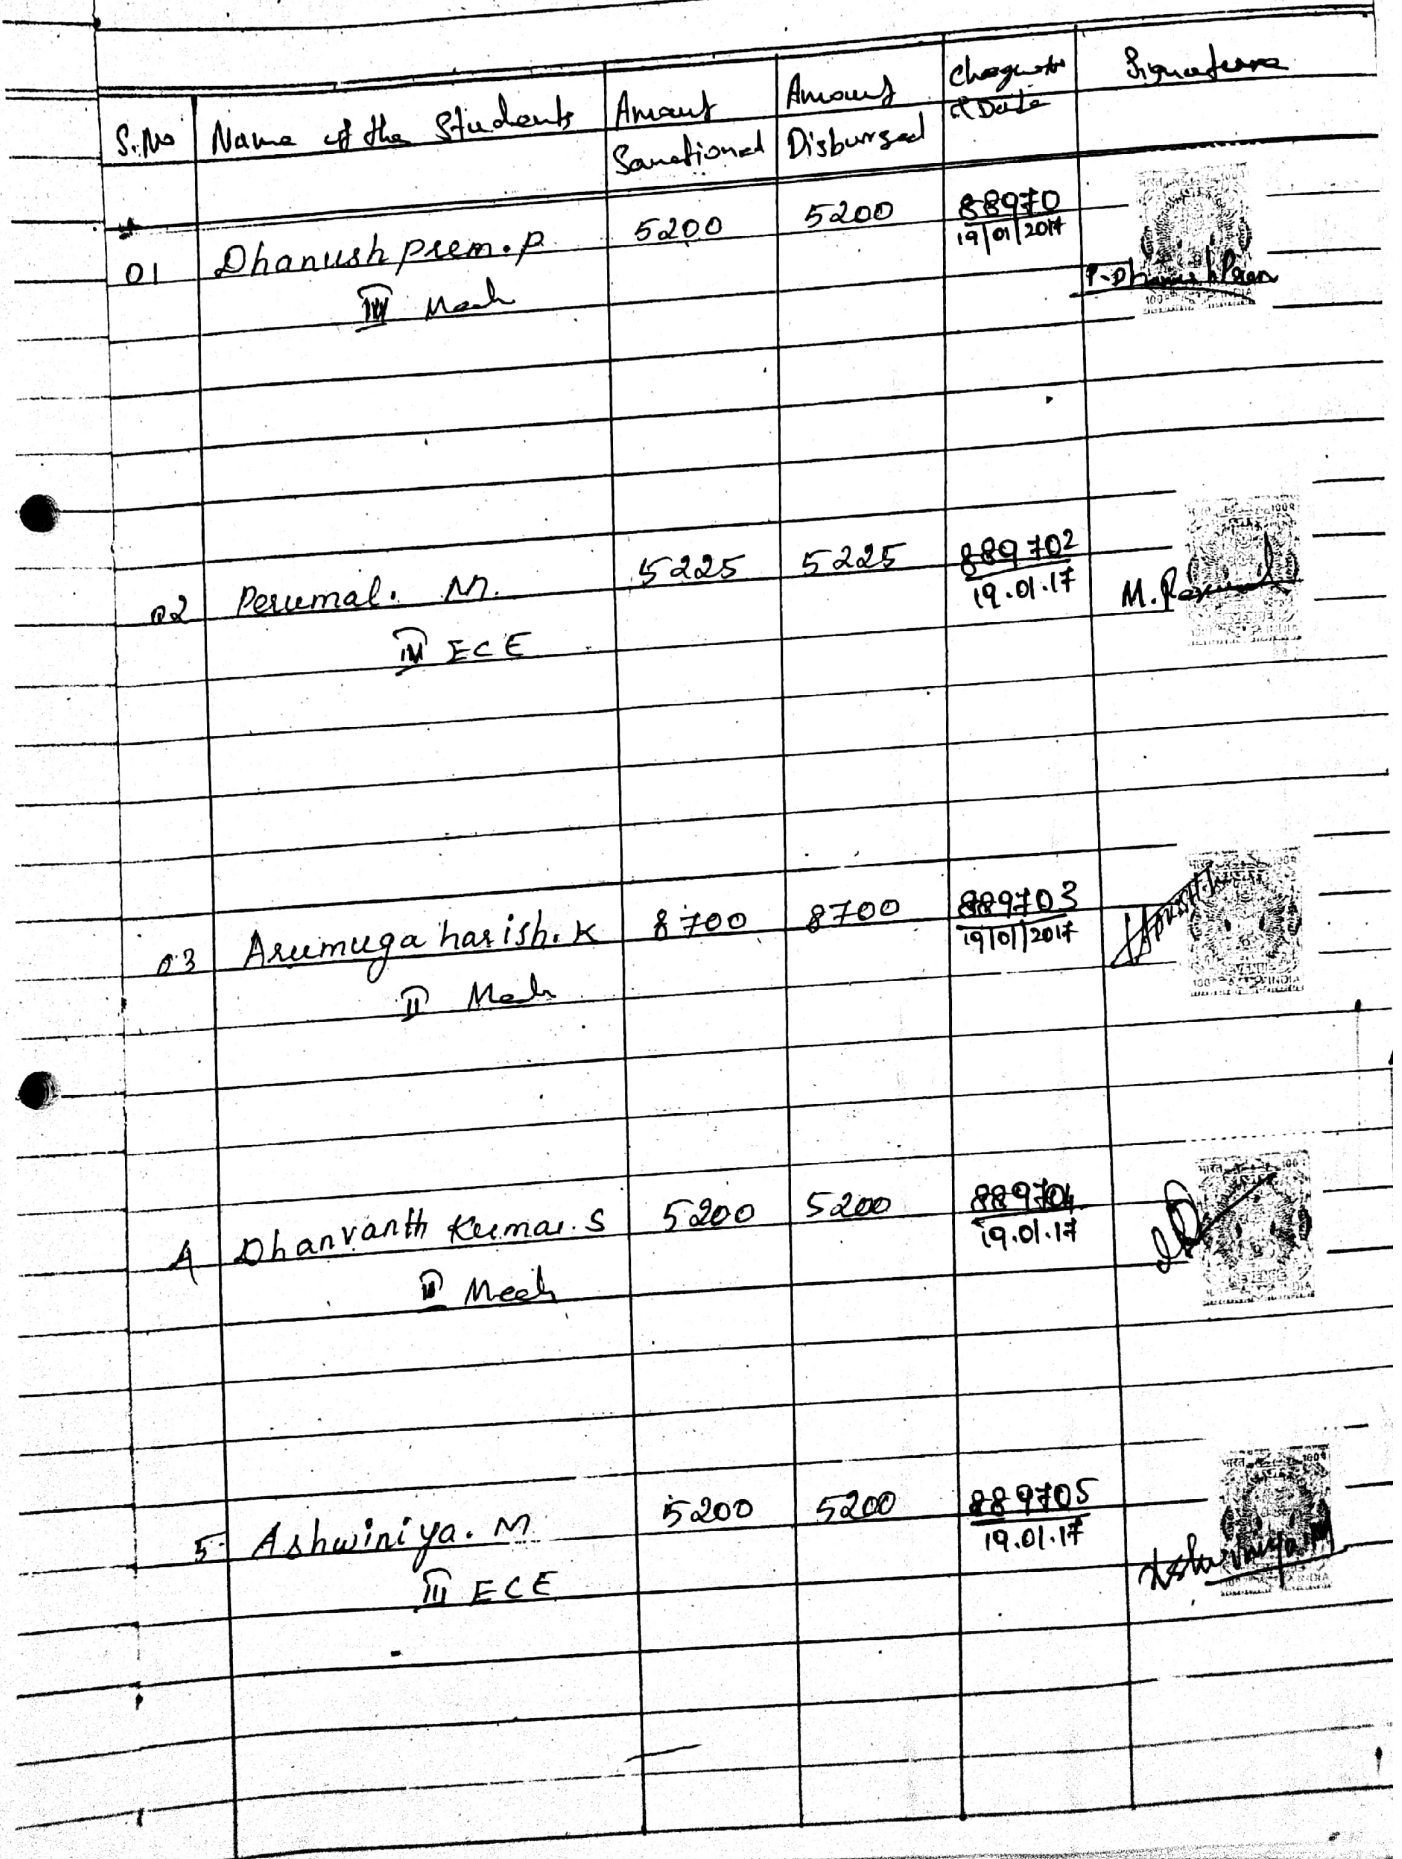 S.No Name of the Students Amount Sanctioned Amount Disbursed Cheque No & Date Signature
01 Dhanush prem. p 5200 5200 88970 19/01/2017 P. Dhanush Prem
IV Mech
02 Perumal. M. 5225 5225 889702 19.01.17 M. Perumal
IV ECE
03 Arumuga harish. K 8700 8700 889703 19/01/2017
II Mech
4 Dhanvanth Kumar. S 5200 5200 889704 19.01.17
II Mech
5 Ashwiniya. M 5200 5200 889705 19.01.17 Ashwiniya.M
III ECE